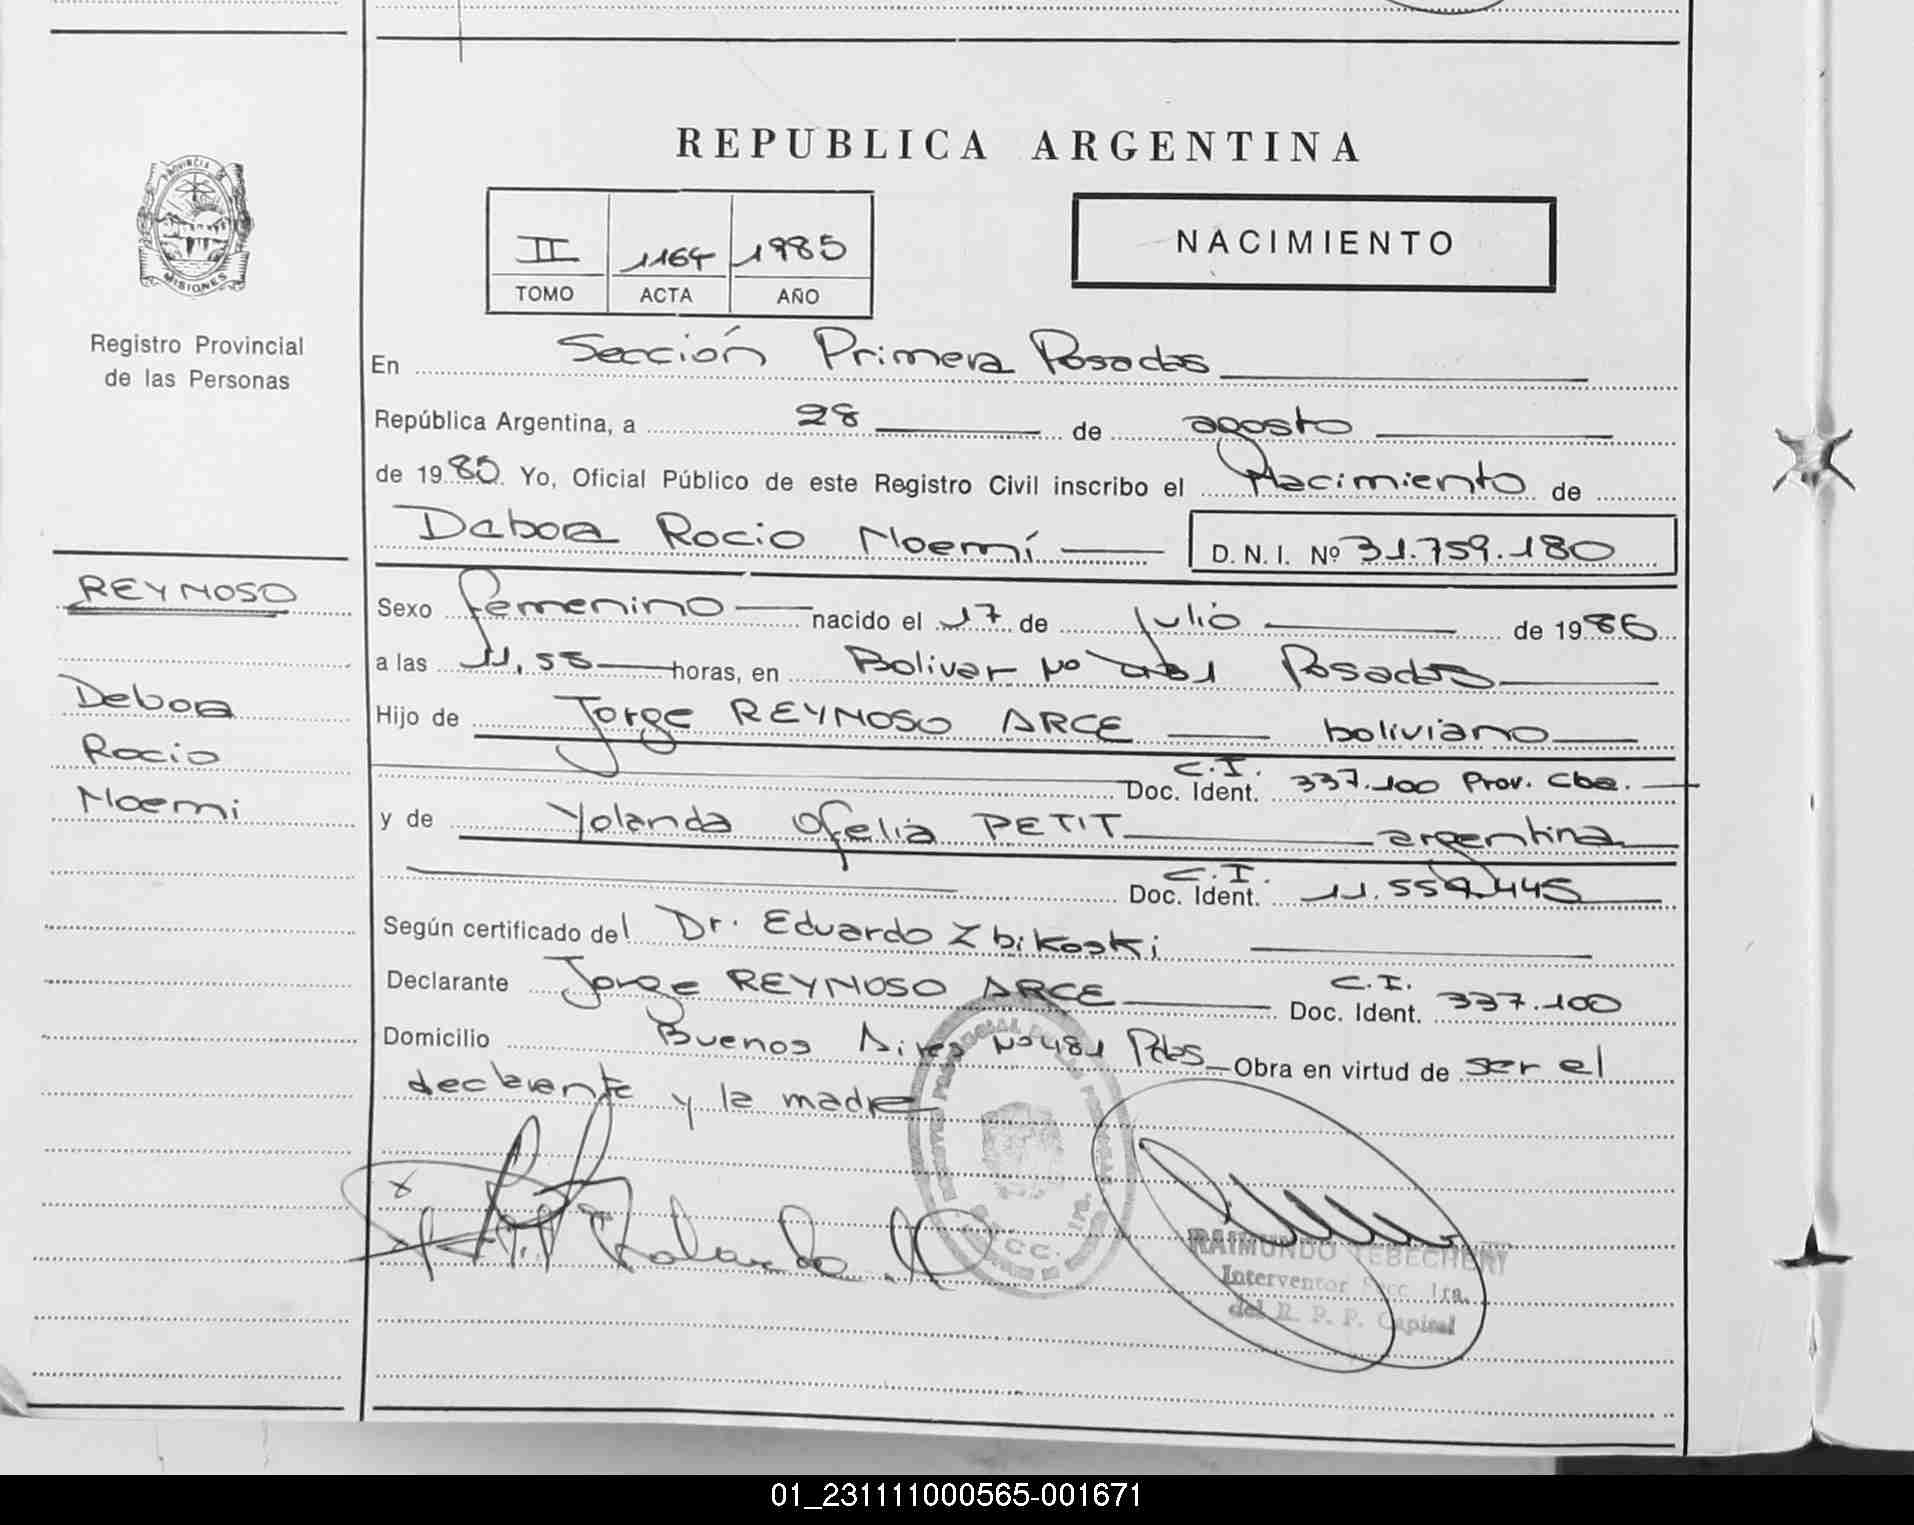 REPUBLICA ARGENTINA
PROVINCIA DE
MISIONES
Registro Provincial
de las Personas
II 1164 1985
TOMO ACTA AÑO
NACIMIENTO
En Sección Primera Posadas
República Argentina, a 28 de agosto
de 1985. Yo, Oficial Público de este Registro Civil inscribo el Nacimiento de
Debora Rocio Noemí D.N.I. Nº 31.759.180
REYNOSO
Debora
Rocio
Noemi
Sexo femenino nacido el 17 de Julio de 1985
a las 11,55 horas, en Bolivar Nº Posadas
Hijo de Jorge REYNOSO ARCE boliviano
C.I.
Doc. Ident. 337.100 Prov. Cba.
y de Yolanda Ofelia PETIT argentina
C.I.
Doc. Ident. 11.559.445
Según certificado del Dr. Eduardo Zbikoski
Declarante Jorge REYNOSO ARCE C.I. Doc. Ident. 337.100
Domicilio Buenos Aires Nº 481 Pdas Obra en virtud de ser el
declarante y la madre
RAIMUNDO TEBECHERY
Interventor Secc. 1ra.
del R. P. P. Capital
01_231111000565-001671